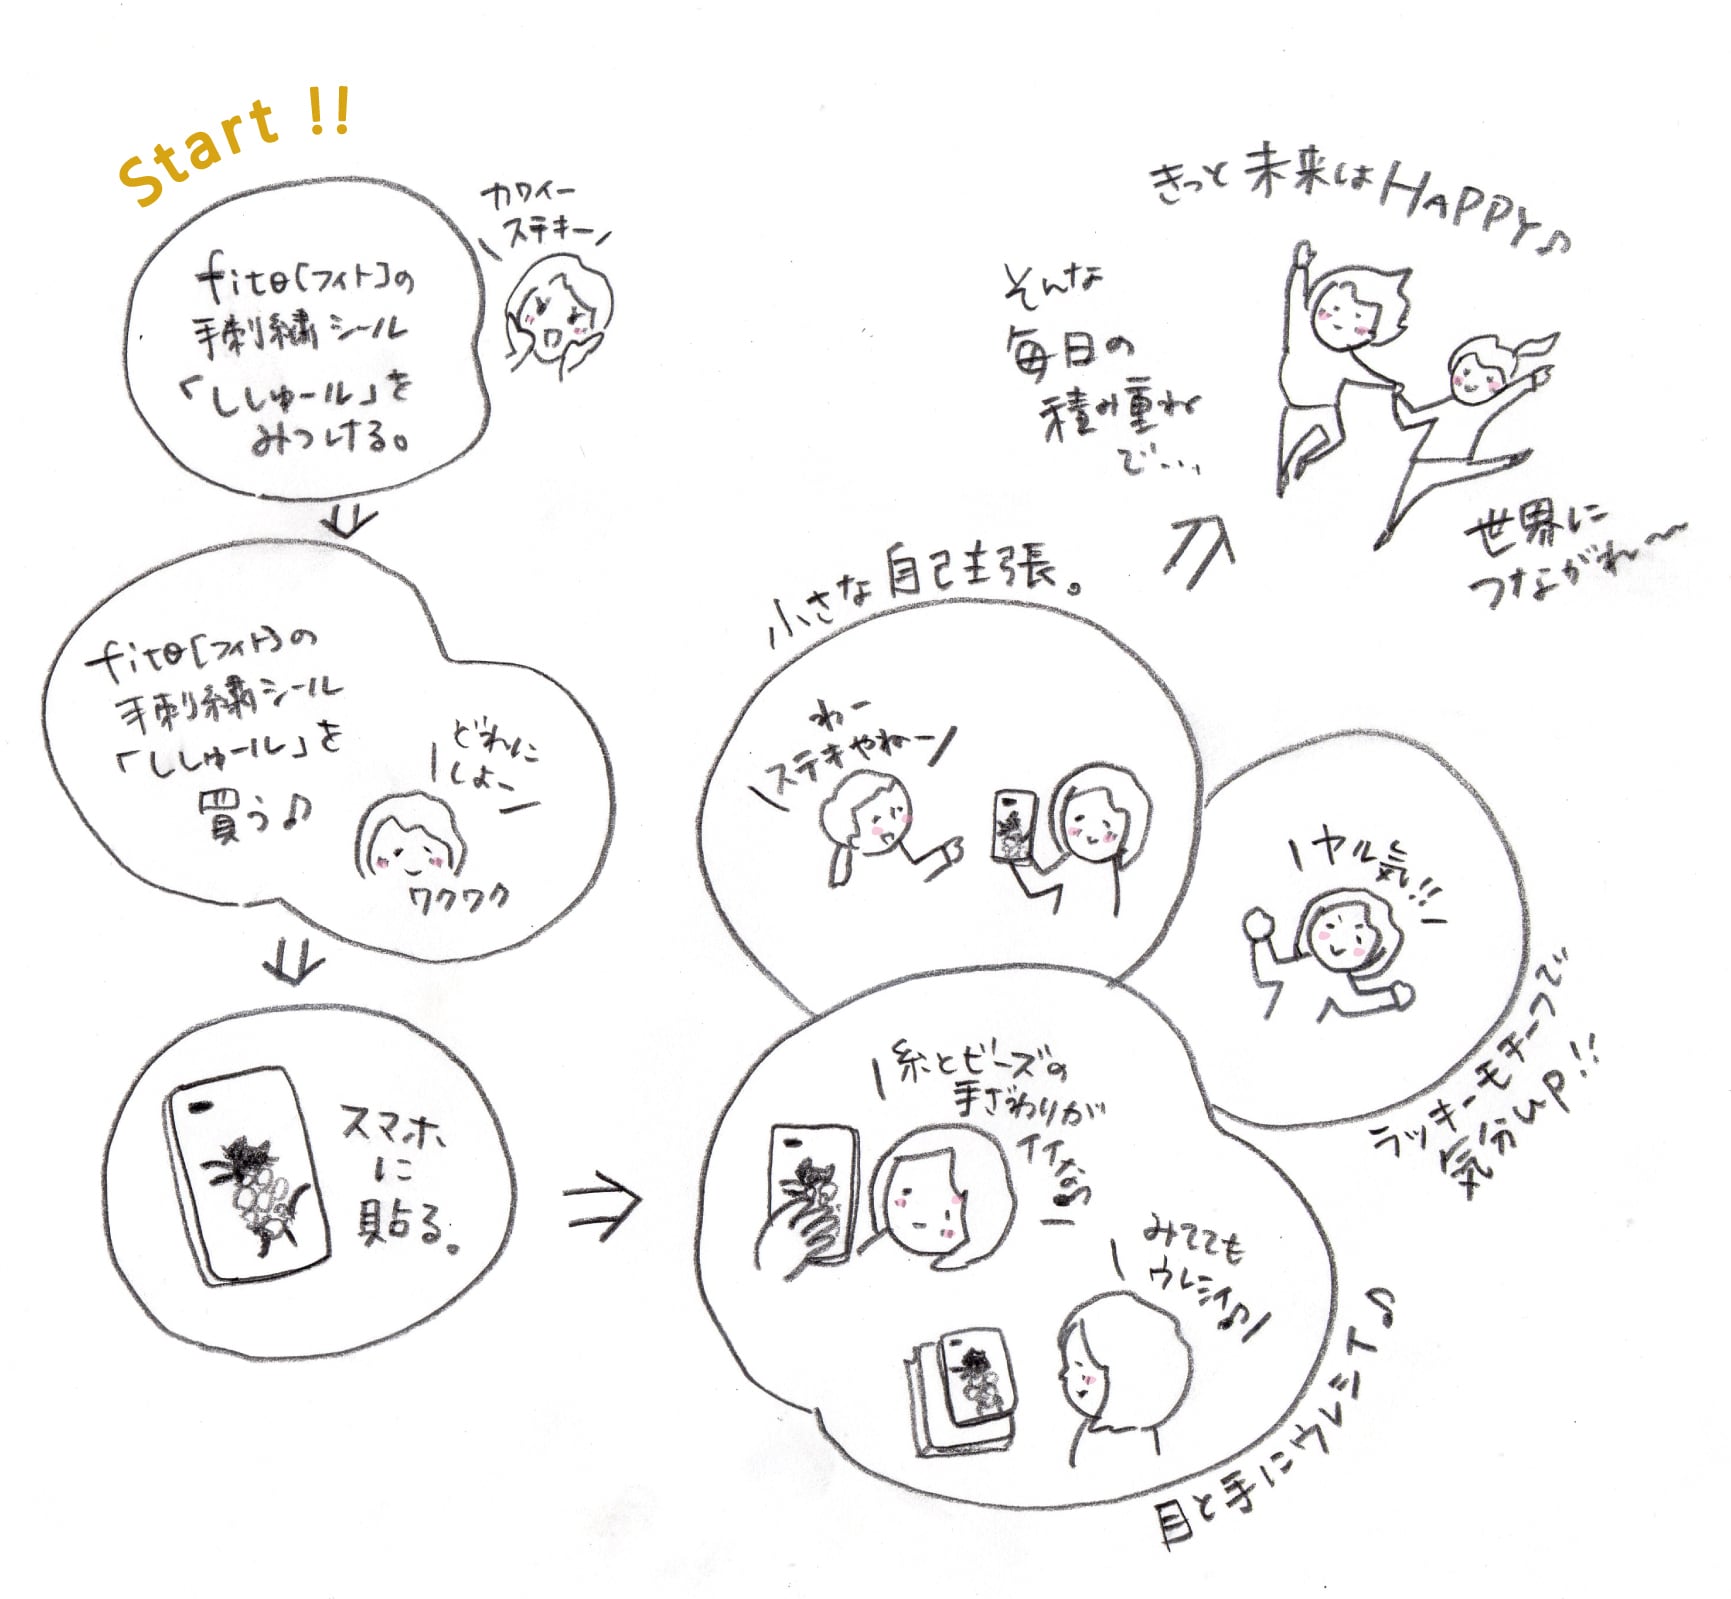 Start !!
カワイー
ステキー
fito[フィト]の
手刺繍シール
「ししゅール」を
みつける。
fito[フィト]の
手刺繍シール
「ししゅール」を
買う♪
どれに
しよー
ワクワク
スマホ
に
貼る。
小さな自己主張。
わー
ステキやねー
ヤル気!!
ラッキーモチーフで
気分up!!
糸とビーズの
手ざわりが
イイなっ
みてても
ウレシイ♪
目と手にウレシイ♪
そんな
毎日の
積み重ね
で…
きっと未来はHAPPY♪
世界に
つながれ〜